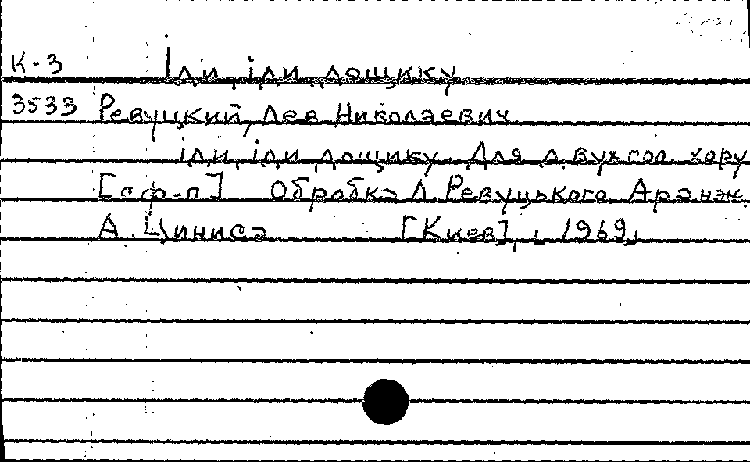 К-3 Іди, іди, дощику
3533 Ревуцкий, Лев Николаевич
іди, іди дощику. Для двухгол. хору
[с ф-п] Обробка Л. Ревуцького. Аранж.
А. Циниса [Киев], 1969,